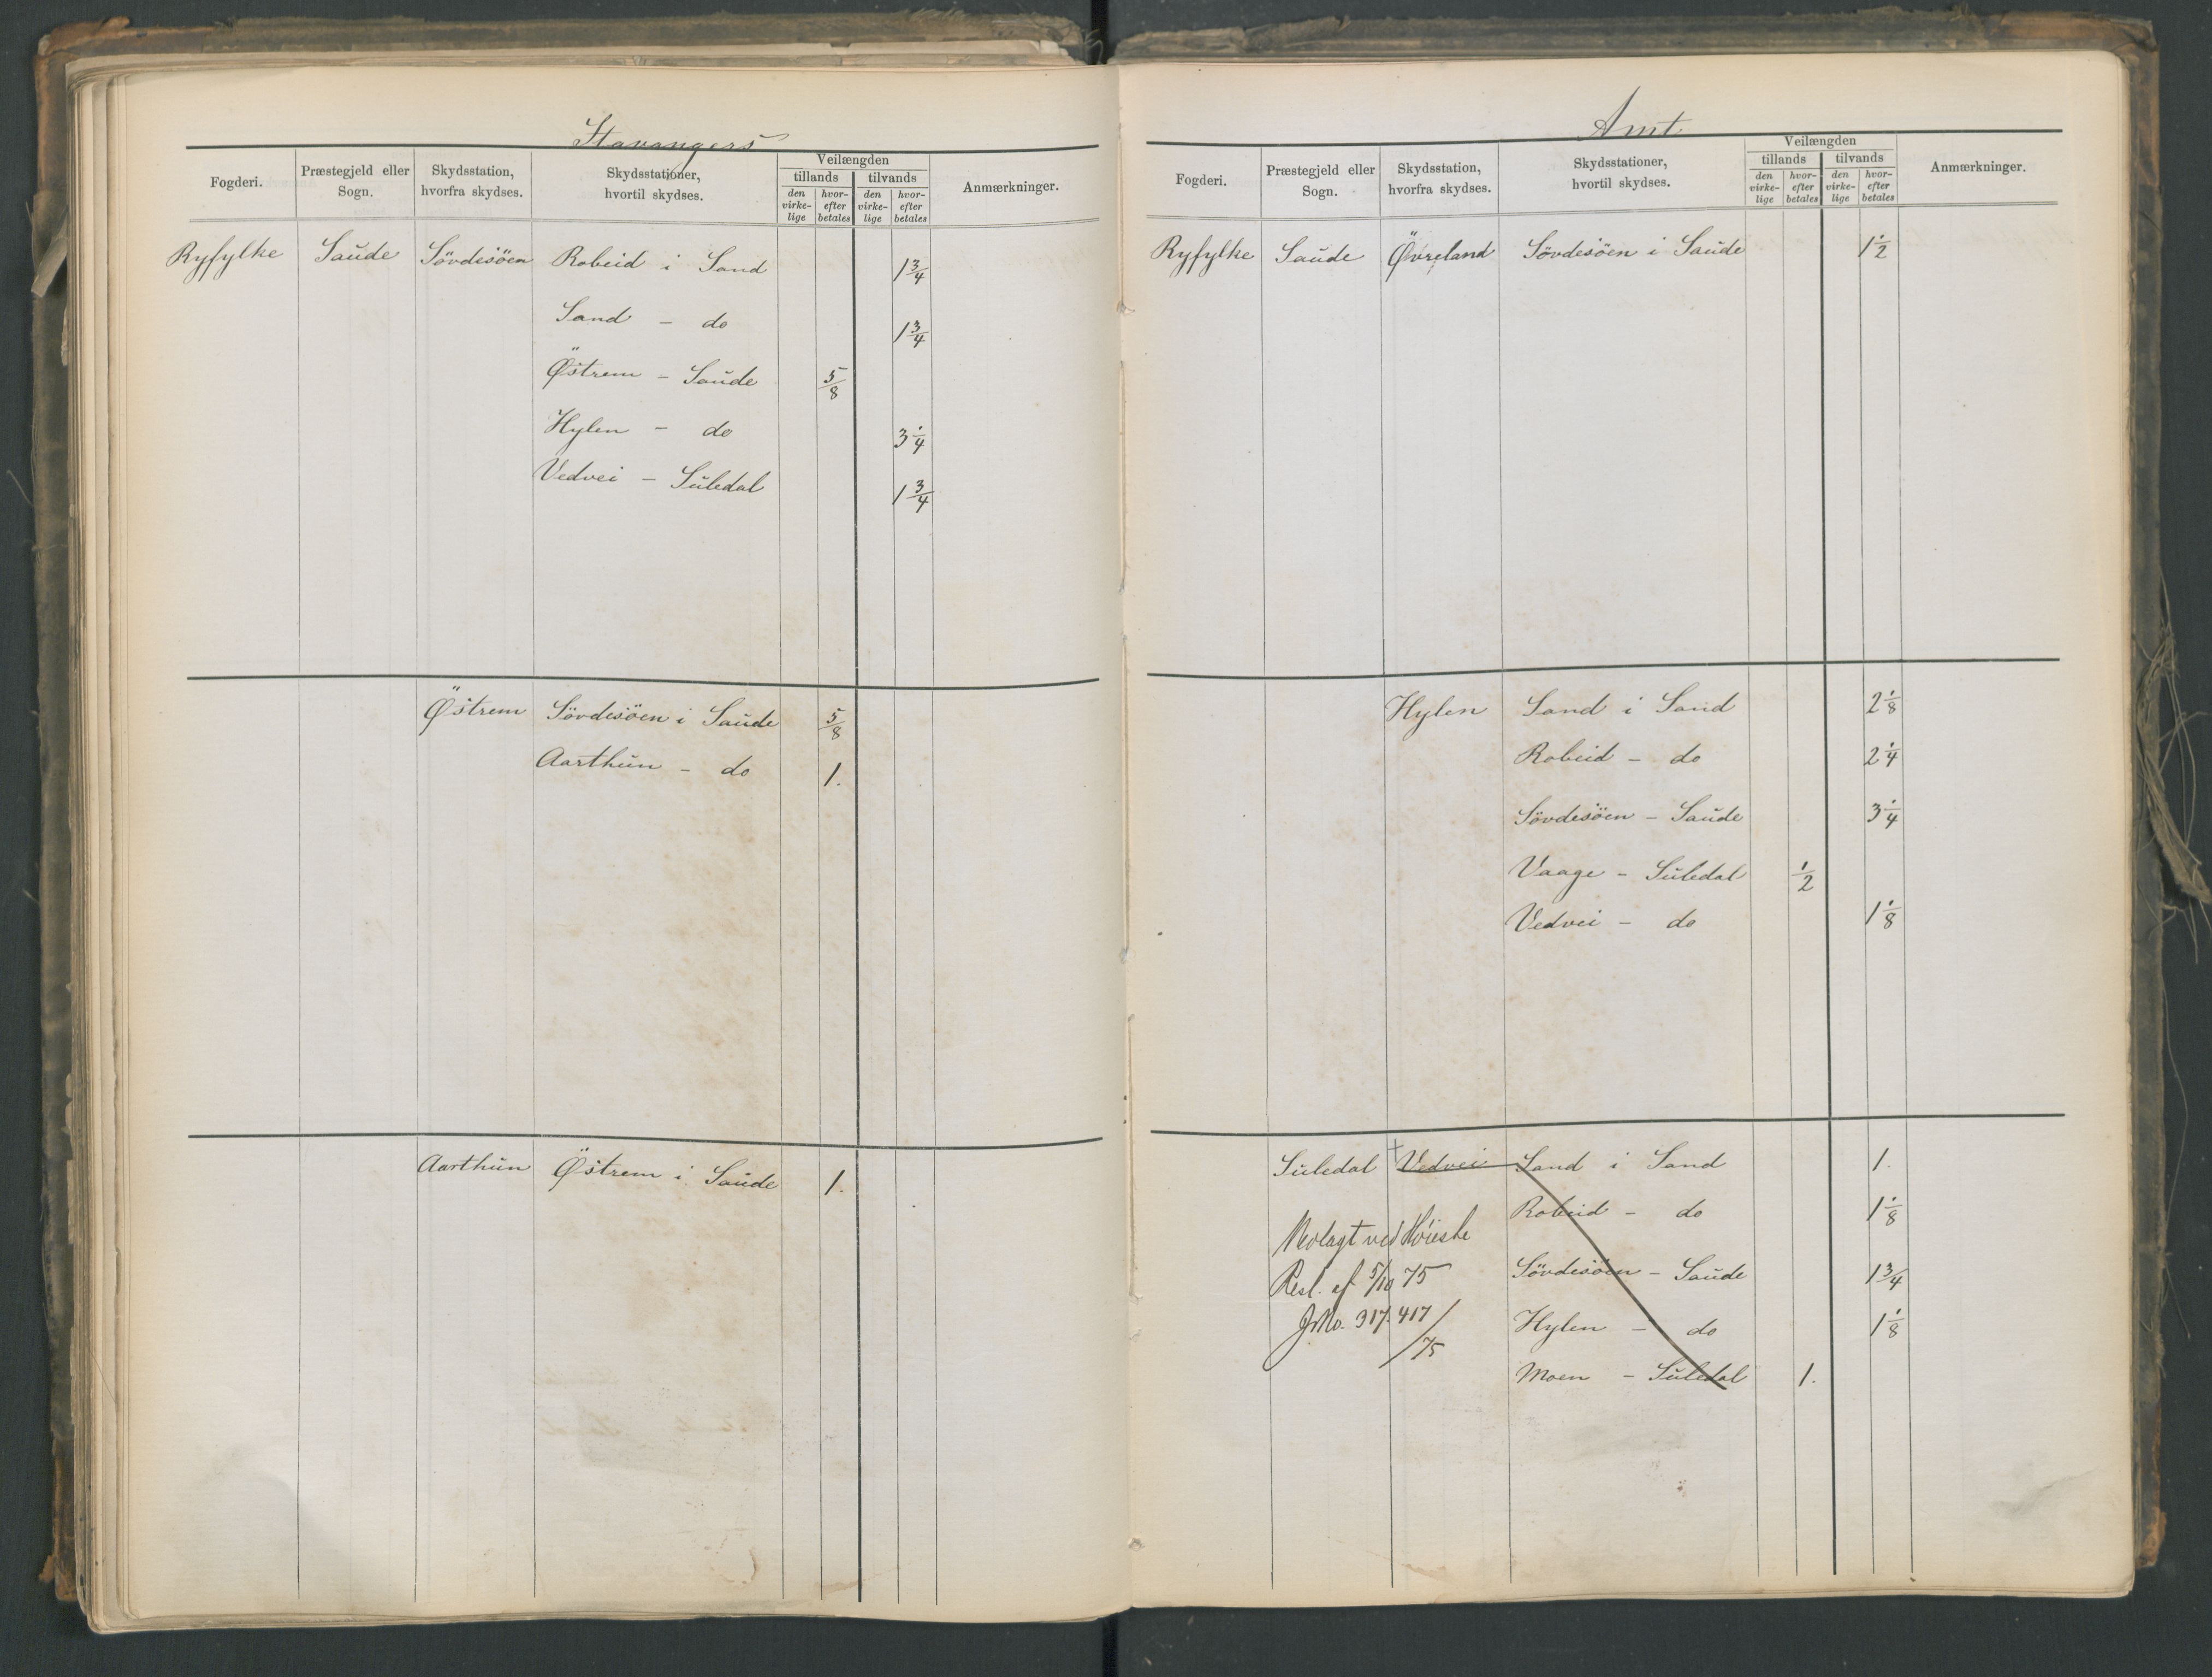 Stavangers
Fogderi. Præstegjeld eller Sogn. Skydsstation, hvorfra skydses. Skydsstationer, hvortil skydses. Veilængden tillands tilvands den virke-lige hvor-efter betales den virke-lige hvor-efter betales Anmærkninger.
Ryfylke Saude Sövdesöen Robeid i Sand 1 3/4
Sand - do 1 3/4
Östrem - Saude 5/8
Hylen - do 3 1/4
Vedvei - Suledal 1 3/4
Östrem Sövdesöen i Saude 5/8
Aarthun - do 1.
Aarthun Östrem i Saude 1.
Amt
Fogderi. Præstegjeld eller Sogn. Skydsstation, hvorfra skydses. Skydsstationer, hvortil skydses. Veilængden tillands tilvands den virke-lige hvor-efter betales den virke-lige hvor-efter betales Anmærkninger.
Ryfylke Saude Övreland Sövdesöen i Saude 1 1/2
Hylen Sand i Sand 2 1/8
Robeid - do 2 1/4
Sövdesöen - Saude 3 1/4
Vaage - Suledal 1/2
Vedvei - do 1 1/8
Suledal + Vedvei Sand i Sand 1.
Robeid - do 1 1/8
Nedlagt ved Høieste
Sövdesöen - Saude 1 3/4
Resl. af 5/10 75
Hylen - do 1 1/8
JrNo. 317. 417/75
Moen - Suledal 1.